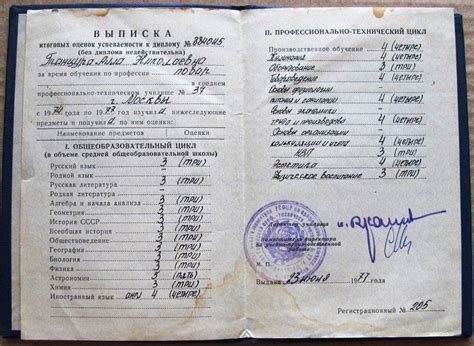 ВЫПИСКА
итоговых оценок успеваемости к диплому № 834045
(без диплома недействительна)
Алла Николаевна
за время обучения по профессии повар
в среднем
профессионально-техническом училище № 37
г. Москвы
с 1974 по 1977 год изучила нижеследующие
предметы и получила по ним оценки:
Наименование предметов Оценки
I. ОБЩЕОБРАЗОВАТЕЛЬНЫЙ ЦИКЛ
(в объеме средней общеобразовательной школы)
Русский язык 3 (три)
Родной язык
Русская литература 3 (три)
Родная литература
Алгебра и начала анализа 3 (три)
Геометрия 3 (три)
История СССР 3 (три)
Всеобщая история 3 (три)
Обществоведение 3 (три)
География 3 (три)
Биология 3 (три)
Физика 3 (три)
Астрономия (пять)
Химия 3 (три)
Иностранный язык англ 4 (четыре)
II. ПРОФЕССИОНАЛЬНО-ТЕХНИЧЕСКИЙ ЦИКЛ
Производственное обучение 4 (четыре)
Кулинария 4 (четыре)
Оборудование 3 (три)
Товароведение 4 (четыре)
Основы физиологии
питания и санитарии 4 (четыре)
Основы экономики
труда и производства 4 (четыре)
Основы организации
калькуляции и учета 4 (четыре)
3 (три)
Эстетика 4 (четыре)
Физическое воспитание 3 (три)
Директор училища
Заместитель директора
по учебно-производственной
работе
М. П.
Выдана 23 июня 1977
Регистрационный № 205